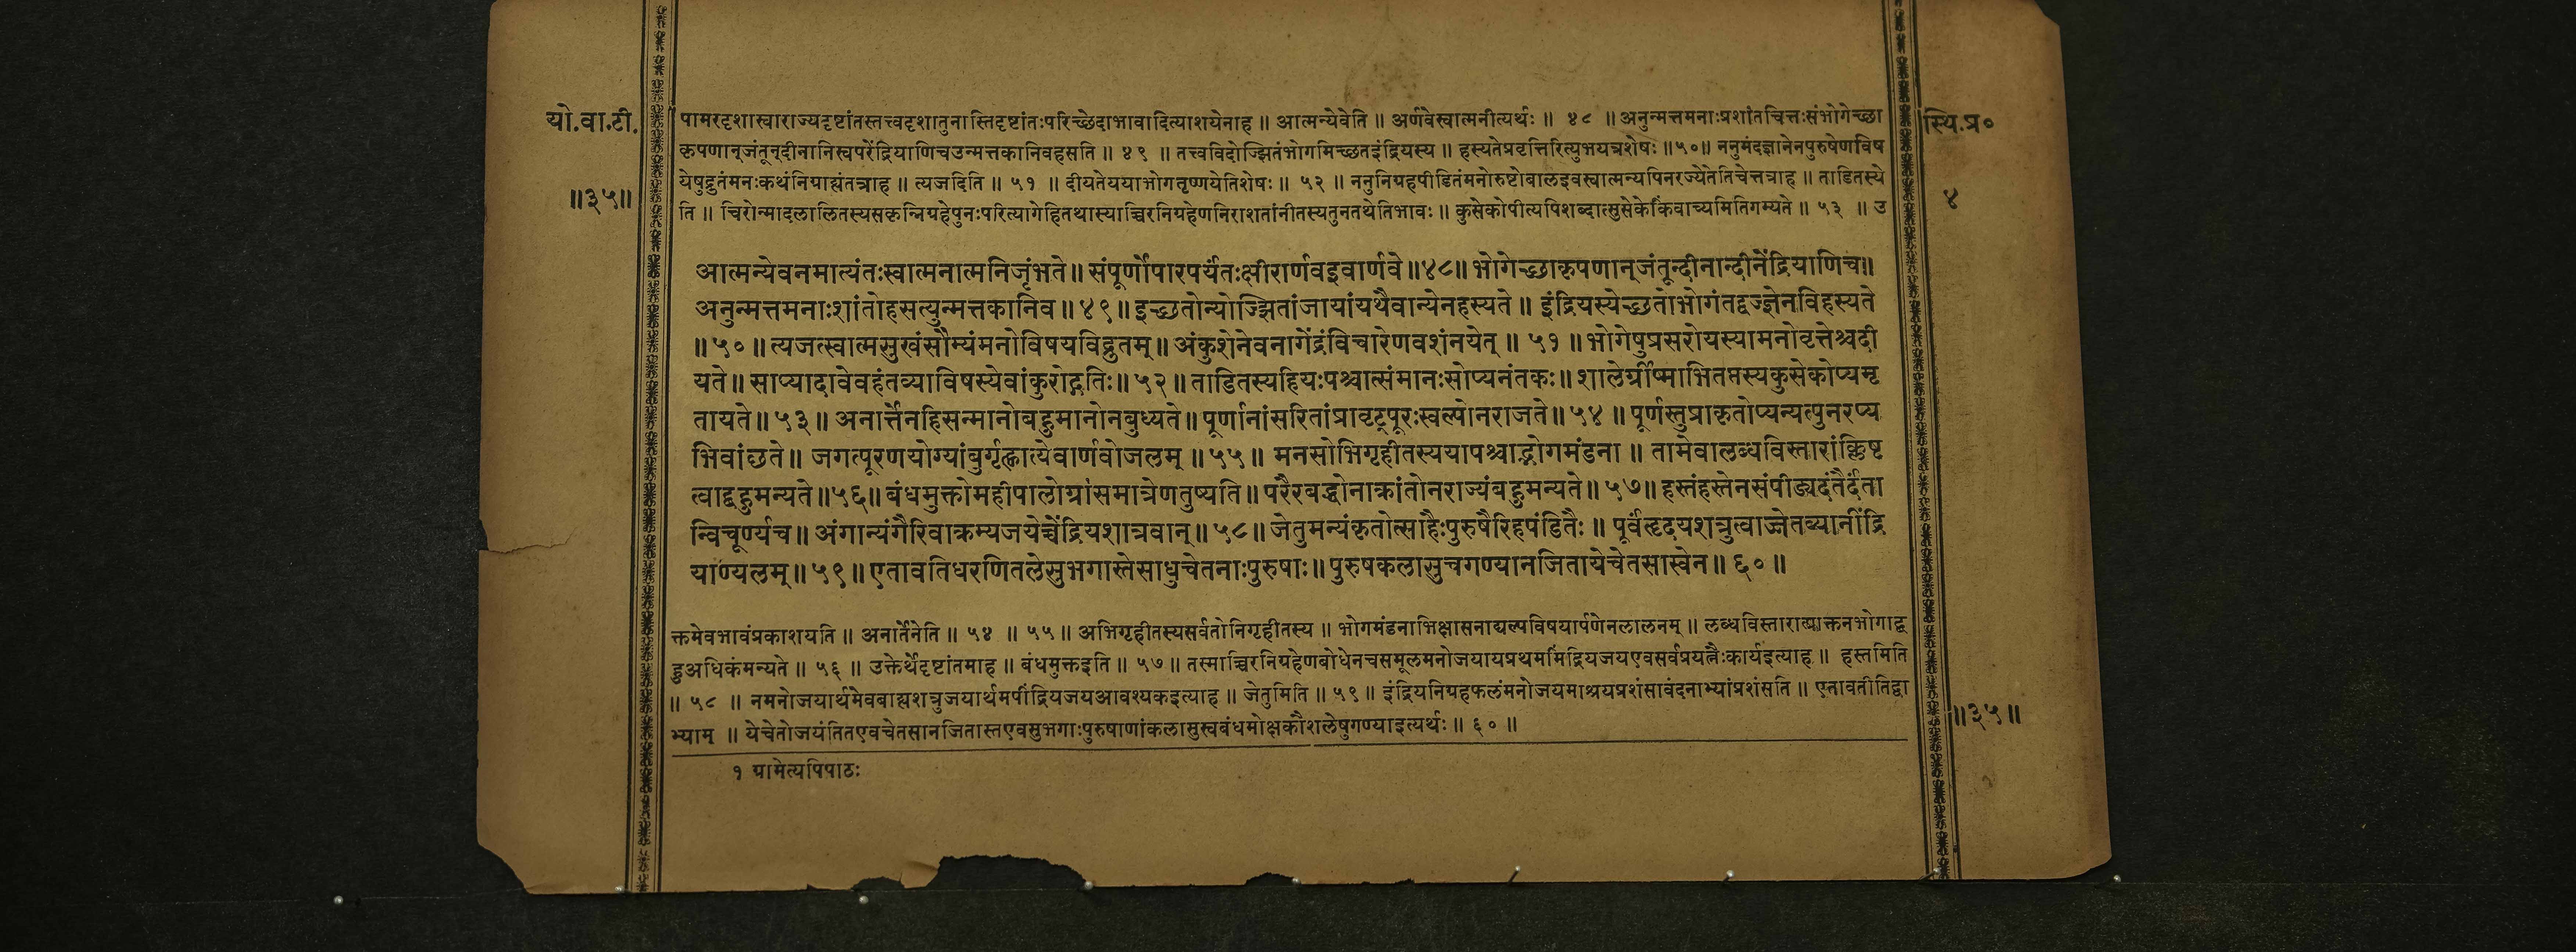 यो.वा.टी.
॥३५॥
पामरदृशास्वाराज्यदृष्टांतस्तत्त्वदृशातुनास्तिदृष्टांतःपरिच्छेदाभावादित्याशयेनाह ॥ आत्मन्येवेति ॥ अर्णवेस्वात्मनीत्यर्थः ॥ ४८ ॥ अनुन्मत्तमनाःप्रशांतचित्तःसंभोगेच्छा
कृपणान्जंतून्दीनानिस्वपरेंद्रियाणिचउन्मत्तकानिवहसति ॥ ४९ ॥ तत्त्वविदोज्झितंभोगमिच्छतइंद्रियस्य ॥ हस्यतेप्रवृत्तिरित्युभयत्रशेषः ॥५०॥ ननुमंदज्ञानेनपुरुषेणविष
येषुद्रुतंमनःकथंनिग्राह्यंतत्राह ॥ त्यजदिति ॥ ५१ ॥ दीयतेययाभोगतृष्णयेतिशेषः ॥ ५२ ॥ ननुनिग्रहपीडितंमनोरुष्टोबालइवस्वात्मन्यपिनरज्येतेतिचेत्तत्राह ॥ ताडितस्ये
ति ॥ चिरोन्मादलालितस्यसकृन्निग्रहेपुनःपरित्यागेहितथास्याच्चिरनिग्रहेणनिराशतांनीतस्यतुनतथेतिभावः ॥ कुसेकोपीत्यपिशब्दात्सुसेकेकिंवाच्यमितिगम्यते ॥ ५३ ॥ उ
आत्मन्येवनमात्यंतःस्वात्मनात्मनिजृंभते ॥ संपूर्णोपारपर्यंतःक्षीरार्णवइवार्णवे ॥४८॥ भोगेच्छाकृपणान्जंतून्दीनान्दीनेंद्रियाणिच॥
अनुन्मत्तमनाःशांतोहसत्युन्मत्तकानिव ॥ ४९ ॥ इच्छतोन्योज्झितांजायांयथैवान्येनहस्यते ॥ इंद्रियस्येच्छतोभोगंतद्वज्ज्ञेनविहस्यते
॥ ५० ॥ त्यजत्स्वात्मसुखंसौम्यंमनोविषयविद्रुतम् ॥ अंकुशेनेवनागेंद्रंविचारेणवशंनयेत् ॥ ५१ ॥ भोगेषुप्रसरोयस्यामनोवृत्तेश्चदी
यते ॥ साप्यादावेवहंतव्याविषस्येवांकुरोद्गतिः ॥ ५२ ॥ ताडितस्यहियःपश्चात्संमानःसोप्यनंतकः ॥ शालेर्ग्रीष्माभितप्तस्यकुसेकोप्यमृ
तायते ॥ ५३ ॥ अनार्त्तेनहिसन्मानोबहुमानोनबुध्यते ॥ पूर्णानांसरितांप्रावृट्पूरःस्वल्पोनराजते ॥ ५४ ॥ पूर्णस्तुप्राकृतोप्यन्यत्पुनरप्य
भिवांछते ॥ जगत्पूरणयोग्यांबुर्गृह्णात्येवार्णवोजलम् ॥ ५५ ॥ मनसोभिगृहीतस्ययापश्चाद्भोगमंडना ॥ तामेवालब्धविस्तारांक्लिष्ट
त्वाद्बहुमन्यते ॥५६॥ बंधमुक्तोमहीपालोग्रासमात्रेणतुष्यति ॥ परैरबद्धोनाक्रांतोनराज्यंबहुमन्यते ॥ ५७ ॥ हस्तंहस्तेनसंपीड्यदंतैर्दंता
न्विचूर्ण्यच ॥ अंगान्यंगैरिवाक्रम्यजयेच्चेंद्रियशात्रवान् ॥ ५८ ॥ जेतुमन्यंकृतोत्साहैःपुरुषैरिहपंडितैः ॥ पूर्वंहृदयशत्रुत्वाज्जेतव्यानींद्रि
याण्यलम् ॥ ५९ ॥ एतावतिधरणितलेसुभगास्तेसाधुचेतनाःपुरुषाः ॥ पुरुषकलासुचगण्यानजितायेचेतसास्वेन ॥ ६० ॥
क्तमेवभावंप्रकाशयति ॥ अनार्तेनेति ॥ ५४ ॥ ५५ ॥ अभिगृहीतस्यसर्वतोनिगृहीतस्य ॥ भोगमंडनाभिक्षासनाद्यल्पविषयार्पणेनलालनम् ॥ लब्धविस्तारात्प्राक्तनभोगाद्ब
हुअधिकंमन्यते ॥ ५६ ॥ उक्तेर्थेदृष्टांतमाह ॥ बंधमुक्तइति ॥ ५७ ॥ तस्माच्चिरनिग्रहेणबोधेनचसमूलमनोजयायप्रथममिंद्रियजयएवसर्वप्रयत्नैःकार्यइत्याह ॥ हस्तमिति
॥ ५८ ॥ नमनोजयार्थमेवबाह्यशत्रुजयार्थमपींद्रियजयआवश्यकइत्याह ॥ जेतुमिति ॥ ५९ ॥ इंद्रियनिग्रहफलंमनोजयमाश्रयप्रशंसावंदनाभ्यांप्रशंसति ॥ एतावतीतिद्वा
भ्याम् ॥ येचेतोजयंतितएवचेतसानजितास्तएवसुभगाःपुरुषाणांकलासुस्वबंधमोक्षकौशलेषुगण्याइत्यर्थः ॥ ६० ॥
१ यामेत्यपिपाठः
स्थि.प्र०
४
॥३५॥